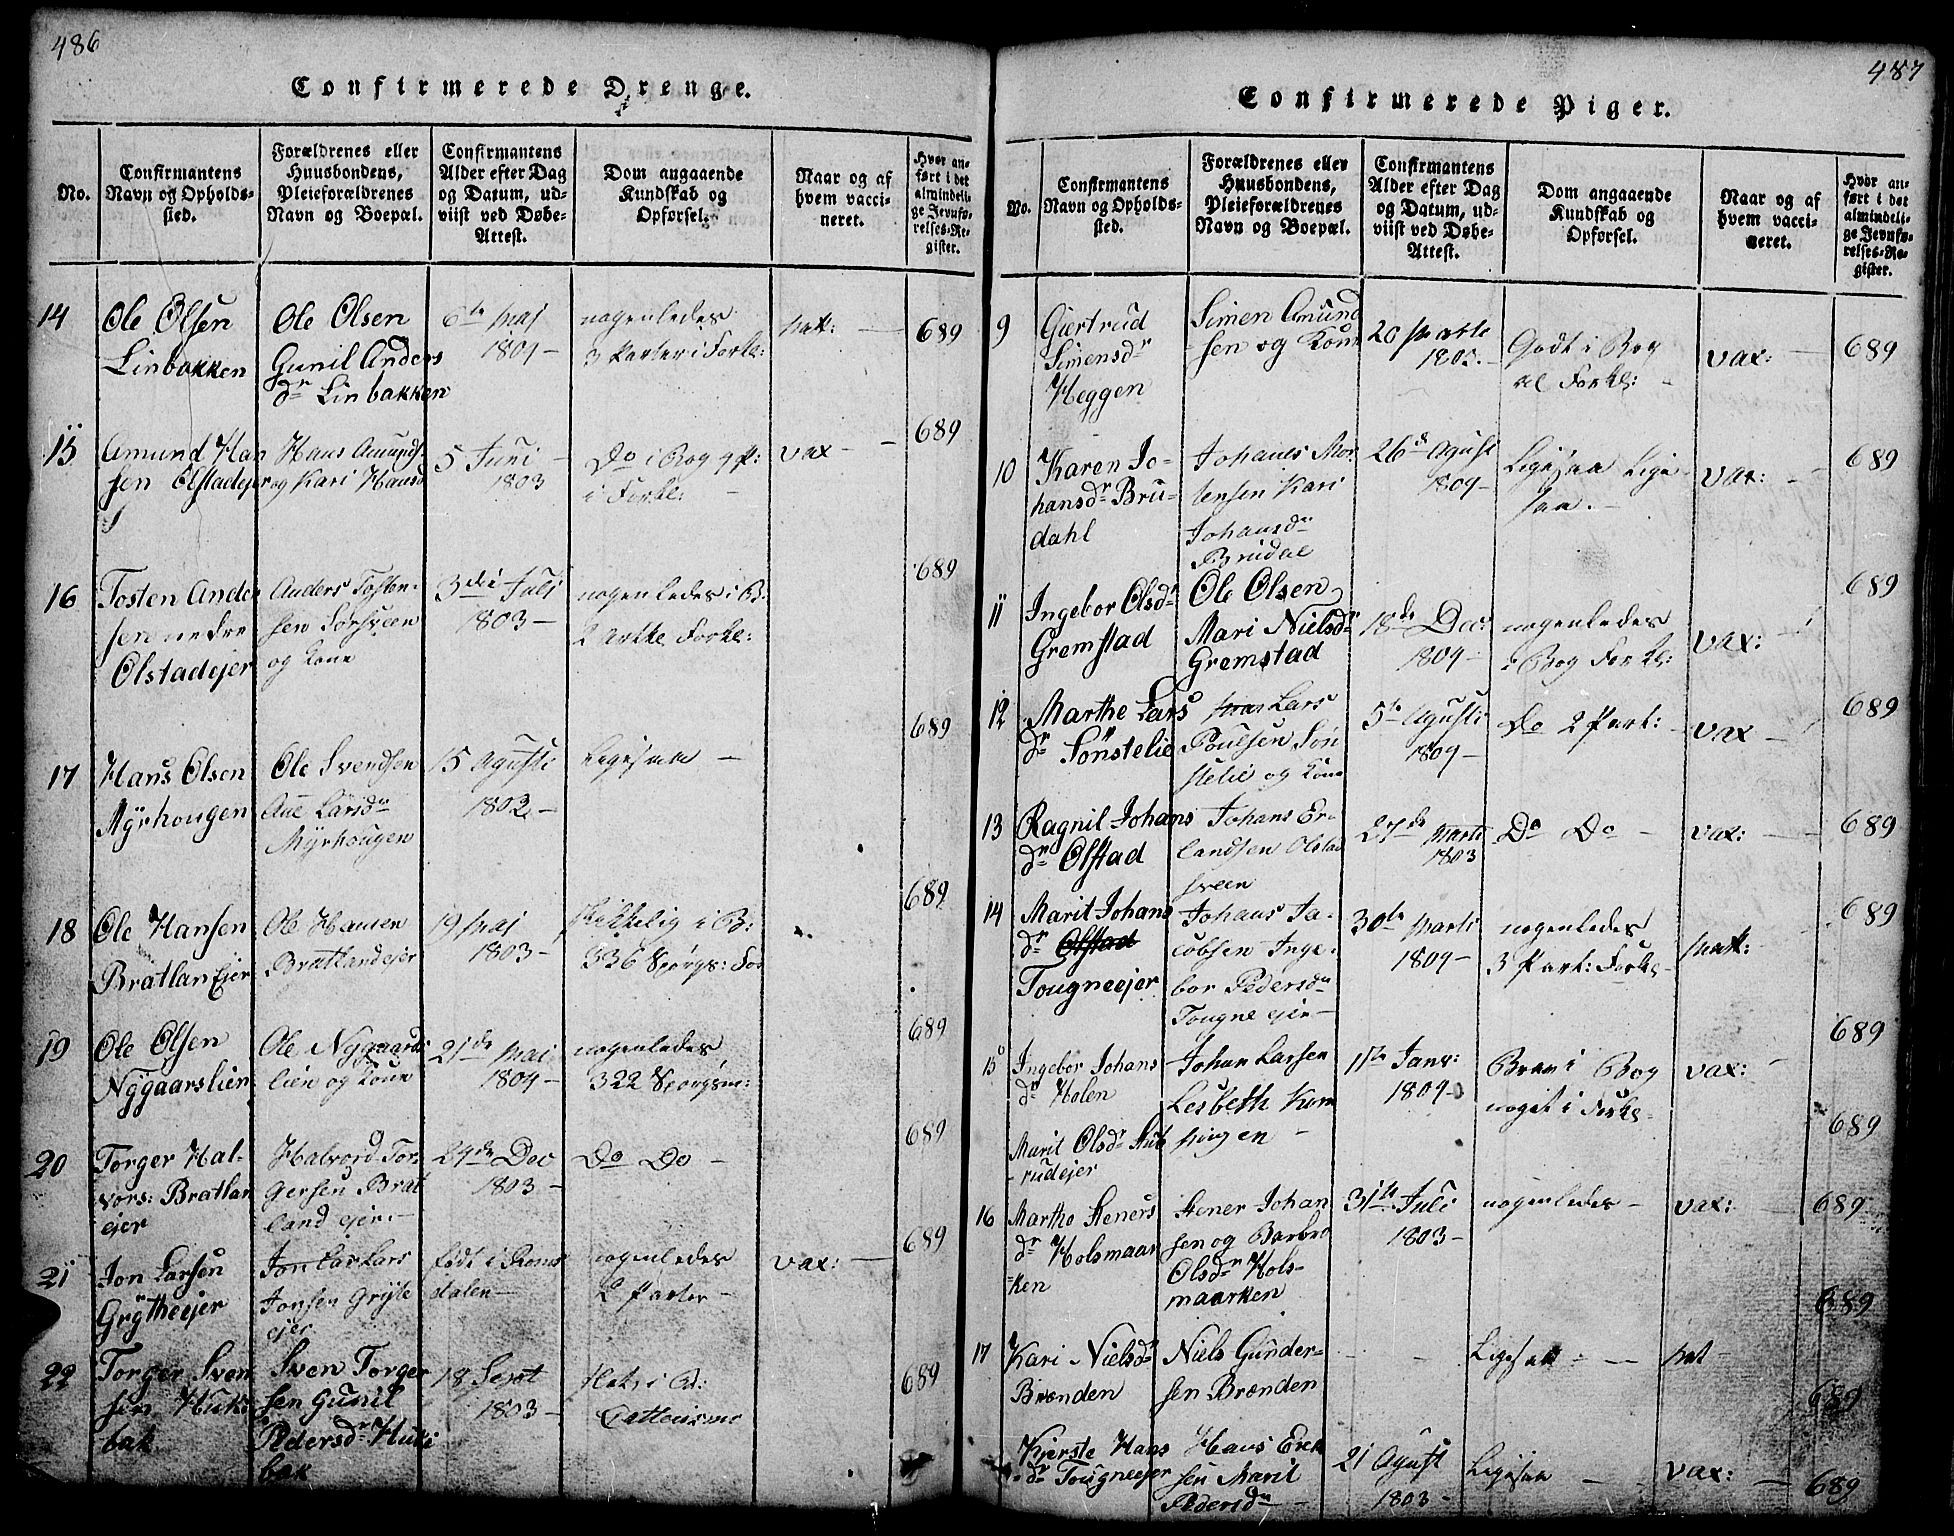 486
Confirmerede Drenge.
No.
Confirmantens
Navn og Opholds-
sted.
Forældrenes eller
Huusbondens,
Pleieforældrenes
Navn og Boepæl.
Confirmantens
Alder efter Dag
og Datum, ud-
viist ved Døbe-
Attest.
Dom angaaende
Kundskab og
Opførsel.
Naar og af
hvem vacci-
neret.
Hvor an-
ført i det
almindeli-
ge Jevnfø-
relses-Re-
gister.
14
Ole Olsen
Linbakken
Ole Olsen
Gunil Anders
dr Linbakken
6te Maj
1804 -
nogenledes
3 Parter i Forkl:
nat: -
689
15
Amund Han
sen Olstadejer
Hans Amunds
og Kari Hansd
5 Juni
1803
Do i Bog
i Forkl: -
vax -
689
16
Tosten Ander
sen nedre
Olstadejer
Anders Tosten-
sen Sorsveen
og Kone
3die Juli
1803 -
nogenledes i B:
2 Forkl:
689
17
Hans Olsen
Myrhougen
Ole Svendsen
Ane Larsdr
Myrhougen
15 Agusti
1802 -
Ligesaa -
689
18
Ole Hansen
Bratlan Ejer
Ole Hansen
Bratlandejer
19 Maj
1803 -
Skikkelig i B:
336 Spørgs: For
689
19
Ole Olsen
Nygaarslien
Ole Nygaards
lien og Kone
21de Mai
1804 -
nogenledes
322 Spørgsm:
689
20
Torger Hal-
vors: Bratlan
ejer
Halvord Tor
gersen Brat
land ejer -
24de Dec
1803 -
Do Do -
689
21
Jon Larsen
Grytheejer
Jon Lar Lars
Jonsen Gryte
ejer
født i Roms
dalen -
nogenledes
2 Parter -
vax: -
689
22
Torger Sven
sen Huke
bak
Sven Torger
sen Gunil
Pedersdr Huke
bak
18 Sept
1803 -
flat i B:
689
487
Confirmerede Piger.
No.
Confirmantens
Navn og Opholds-
sted.
Forældrenes eller
Huusbondens,
Pleieforældrenes
Navn og Boepæl.
Confirmantens
Alder efter Dag
og Datum, ud-
viist ved Døbe-
Attest.
Dom angaaende
Kundskab og
Opførsel.
Naar og af
hvem vacci-
neret.
Hvor an-
ført i det
almindeli-
ge Jevnfø-
relses-Re-
gister.
9
Giertrud
Simensdr
Heggen
Simen Amund
sen og Kone
20 Marts
1803. -
Godt i Bog
al Forkl: -
vax: -
689
10
Karen Jo-
hansdr Bru-
dahl
Johanes Mor
tensen Kari
Johansdr
Brudal
26de Agust
1804 -
Ligesaa Lige
saa. -
vax: -
689
11
Ingebor Olsdr
Gremstad
Ole Olsen
Mari Nielsdr
Gremstad
18de Dec:
1804 -
nogenledes
i Bog Forkl:
vax: -
689
12
Marthe Lars
dr Sønstelie
Lars
Poulsen Søn
stelie og Kone
5te Agusti
1804 -
Do 2 Part: -
vax -
689
13
Ragnil Johans
dr Olstad
Johans Er-
landsen Olstad
sveen
27de Marti
1803
Do Do -
vax: -
689
14
Marit Johans
dr Olstad
Tougneejer
Johans Ja-
cobsen Inge-
bor Pedersdr
Tougne ejer -
30te Marti
1804 -
nogenledes
3 Part: Forkl -
nat:
689
15
Ingebor Johans
dr Holen
Johan Larsen
Lesbeth Kom
ningen -
11te Janv:
1804 -
Brav i Bog
noget i Forkl -
vax: -
689
Marit Olsdr Stub
- rudejer
689
16
Marthe Steners
dr Holsmaar
=ken
Stener Johan
sen og Barbro
Olsdr Hols-
maarken
31te Juli
1803 -
nogenledes -
vax: -
689
17
Kari Nielsdr
Brenden
Niels Gunder-
sen Brenden
- -
Ligesaa - -
nat -
689
Kjerste Hans
dr Tougneejer
Hans Erek
sen Marit
Pedersdr -
21 Agust
1803 -
Ligesaa -
vax: -
689
689